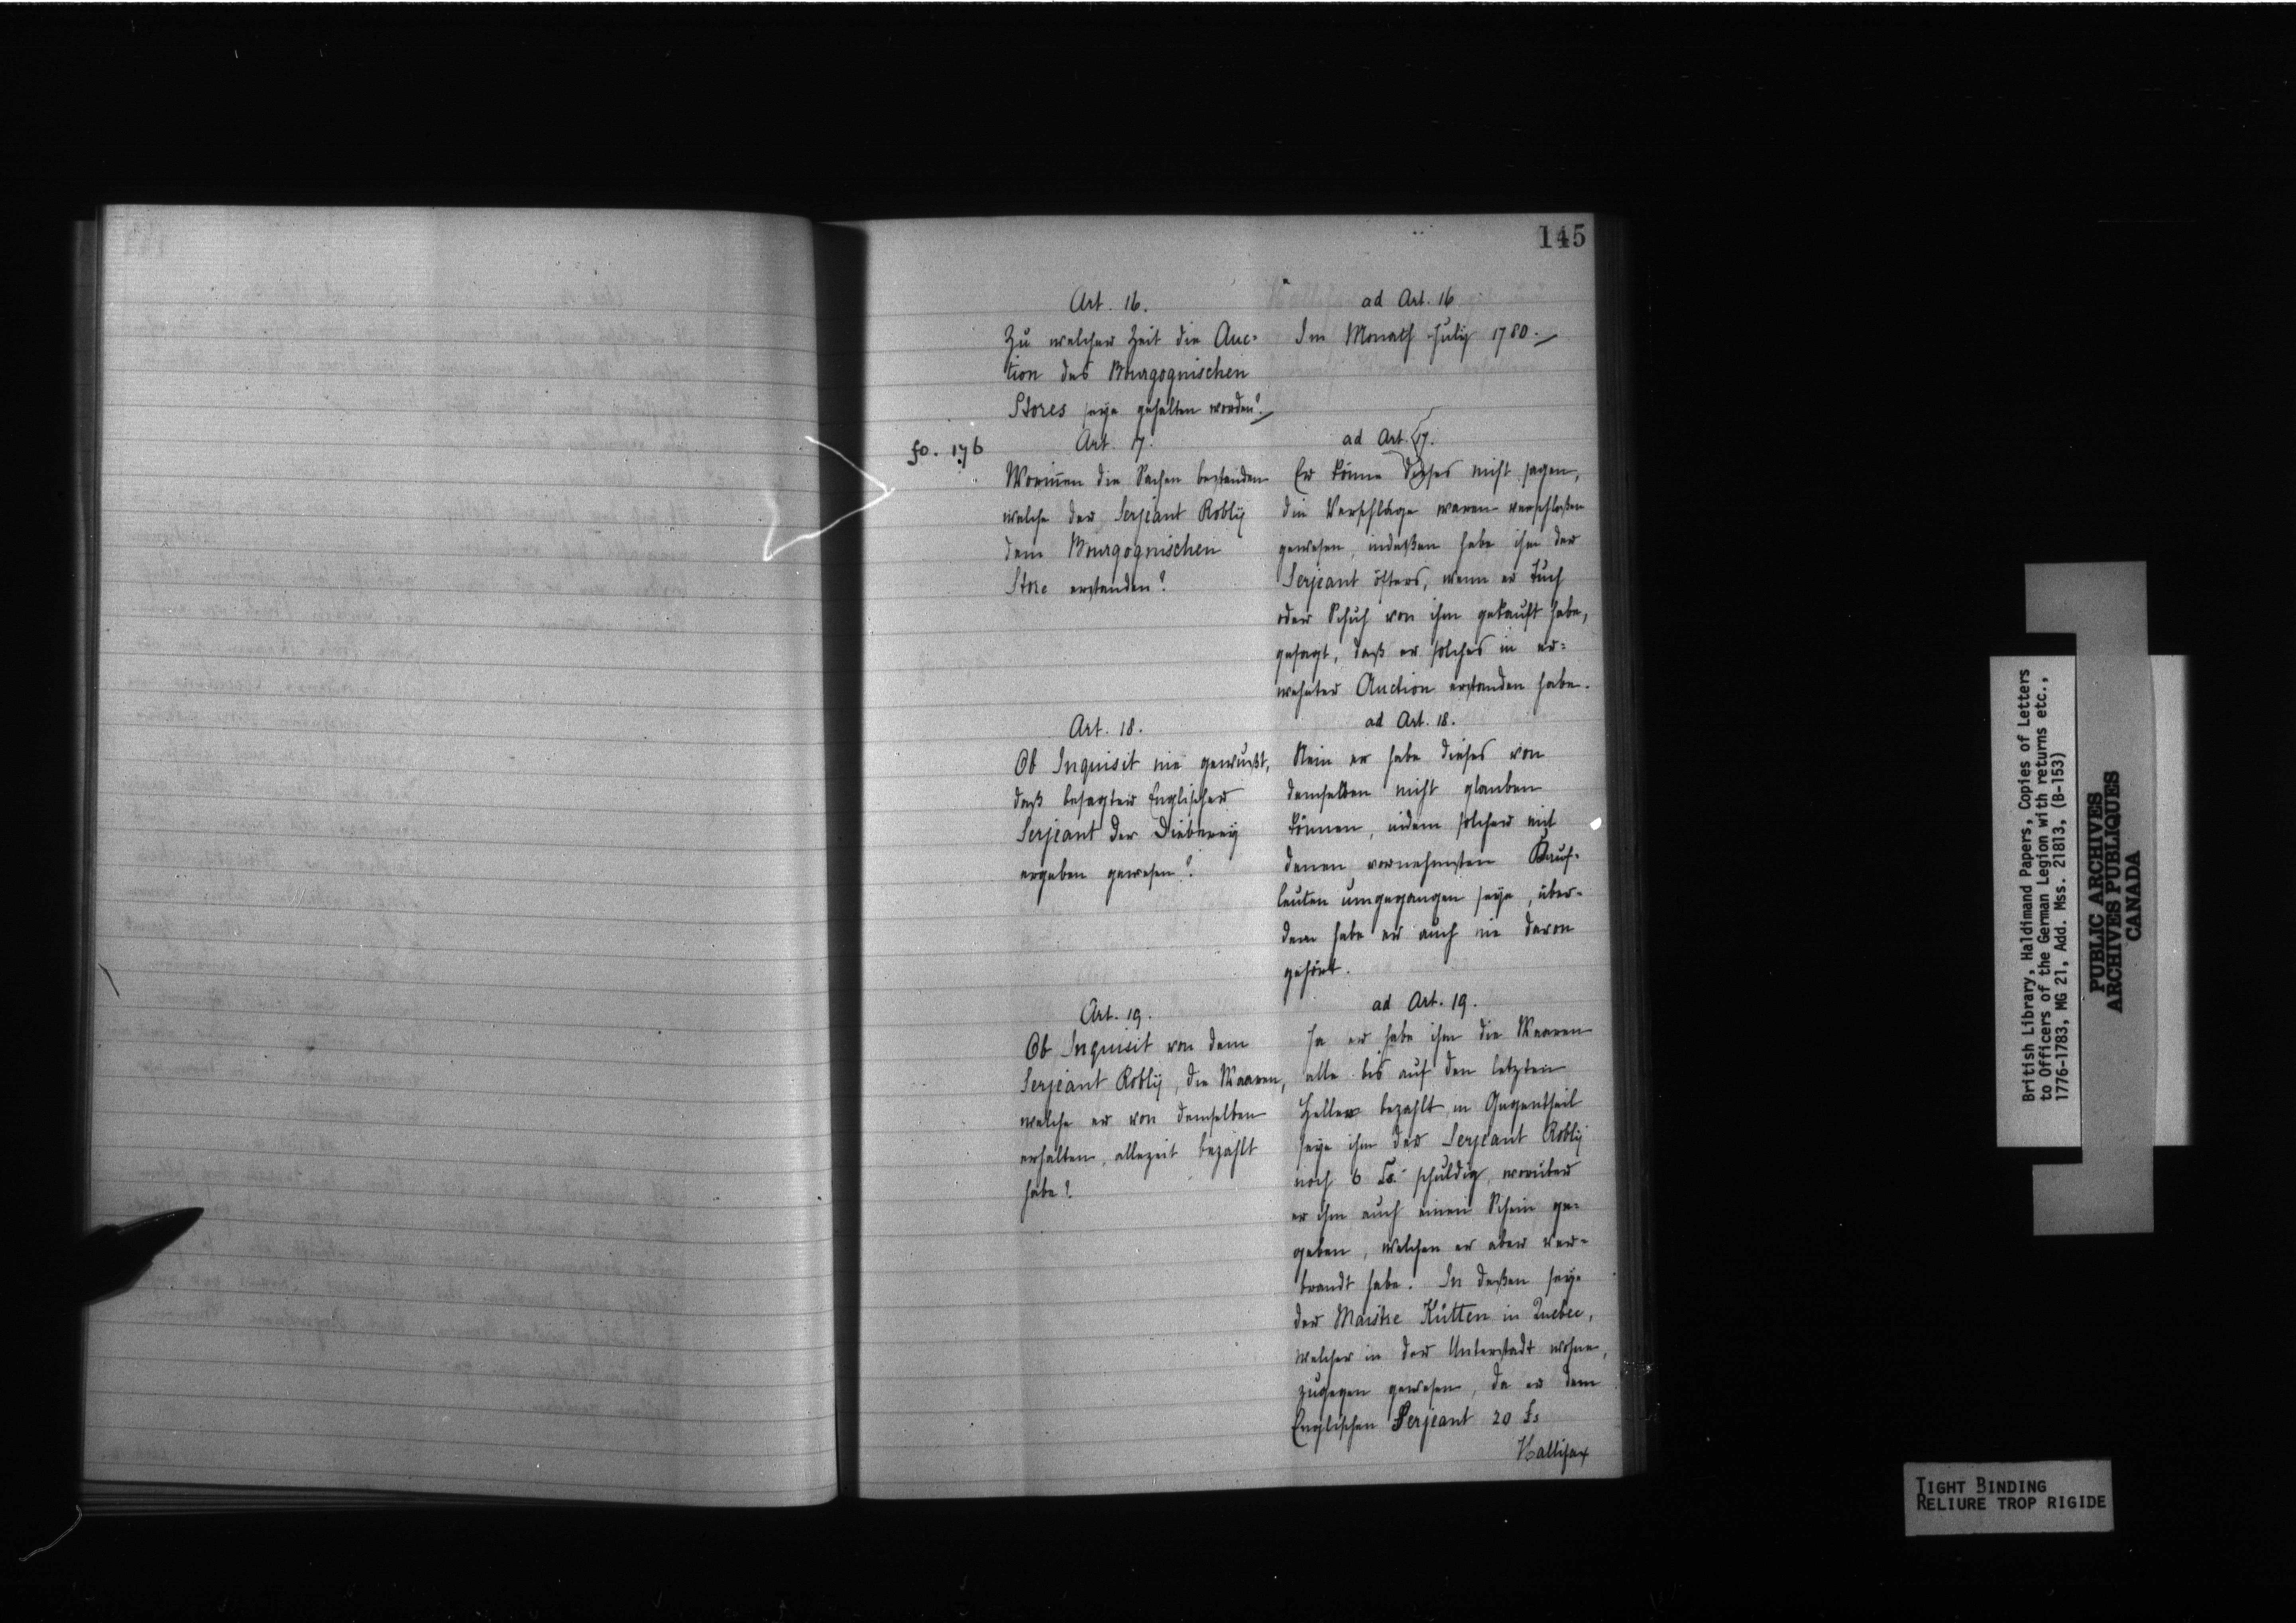 145
Art. 16.
Zu welcher Zeit die Auc-
tion des Bourgognischen
Stores seye gehalten worden?
ad Art. 16
Im Monath July 1780.
fo. 176
Art. 17.
Worinnen die Sachen bestanden
welche der Serjeant Robly
dem Bourgognischen
Store erstanden?
ad Art. 17.
Er könne dieses nicht sagen,
die Verschläge waren verschloßen
gewesen, indeßen habe ihm der
Serjeant öfters, wenn er Tuch
oder Schuh von ihm gekauft habe,
gesagt, daß er solches in er-
wehnter Auction erstanden habe.
Art. 18.
Ob Inquisit nie gewußt,
daß besagter Englischer
Serjeant der Dieberey
ergeben gewesen?
ad Art. 18.
Nein er habe dieses von
demselben nicht glauben
können, indem solcher mit
denen vornehmsten Kauf-
leuten umgegangen seye, über-
dem habe er auch nie davon
gehört.
Art. 19.
Ob Inquisit von dem
Serjeant Robly, die Waaren,
welche er von demselben
erhalten, allezeit bezahlt
habe?
ad Art. 19.
Ja er habe ihm die Waaren
alle bis auf den letzten
Heller bezahlt, im Gegentheil
seye ihm der Serjeant Robly
noch 6 £s. schuldig, worüber
er ihm auch einen Schein ge-
geben, welchen er aber ver-
brandt habe. In deßen seye
der Maistre Kütten in Quebec,
welcher in der Unterstadt wohne,
zugegen gewesen, da er dem
Englischen Serjeant 20 £s
Hallifax
British Library, Haldimand Papers, Copies of Letters
to Officers of the German Legion with returns etc.,
1776-1783, MG 21, Add. Mss. 21813, (B-153)
PUBLIC ARCHIVES
ARCHIVES PUBLIQUES
CANADA
TIGHT BINDING
RELIURE TROP RIGIDE